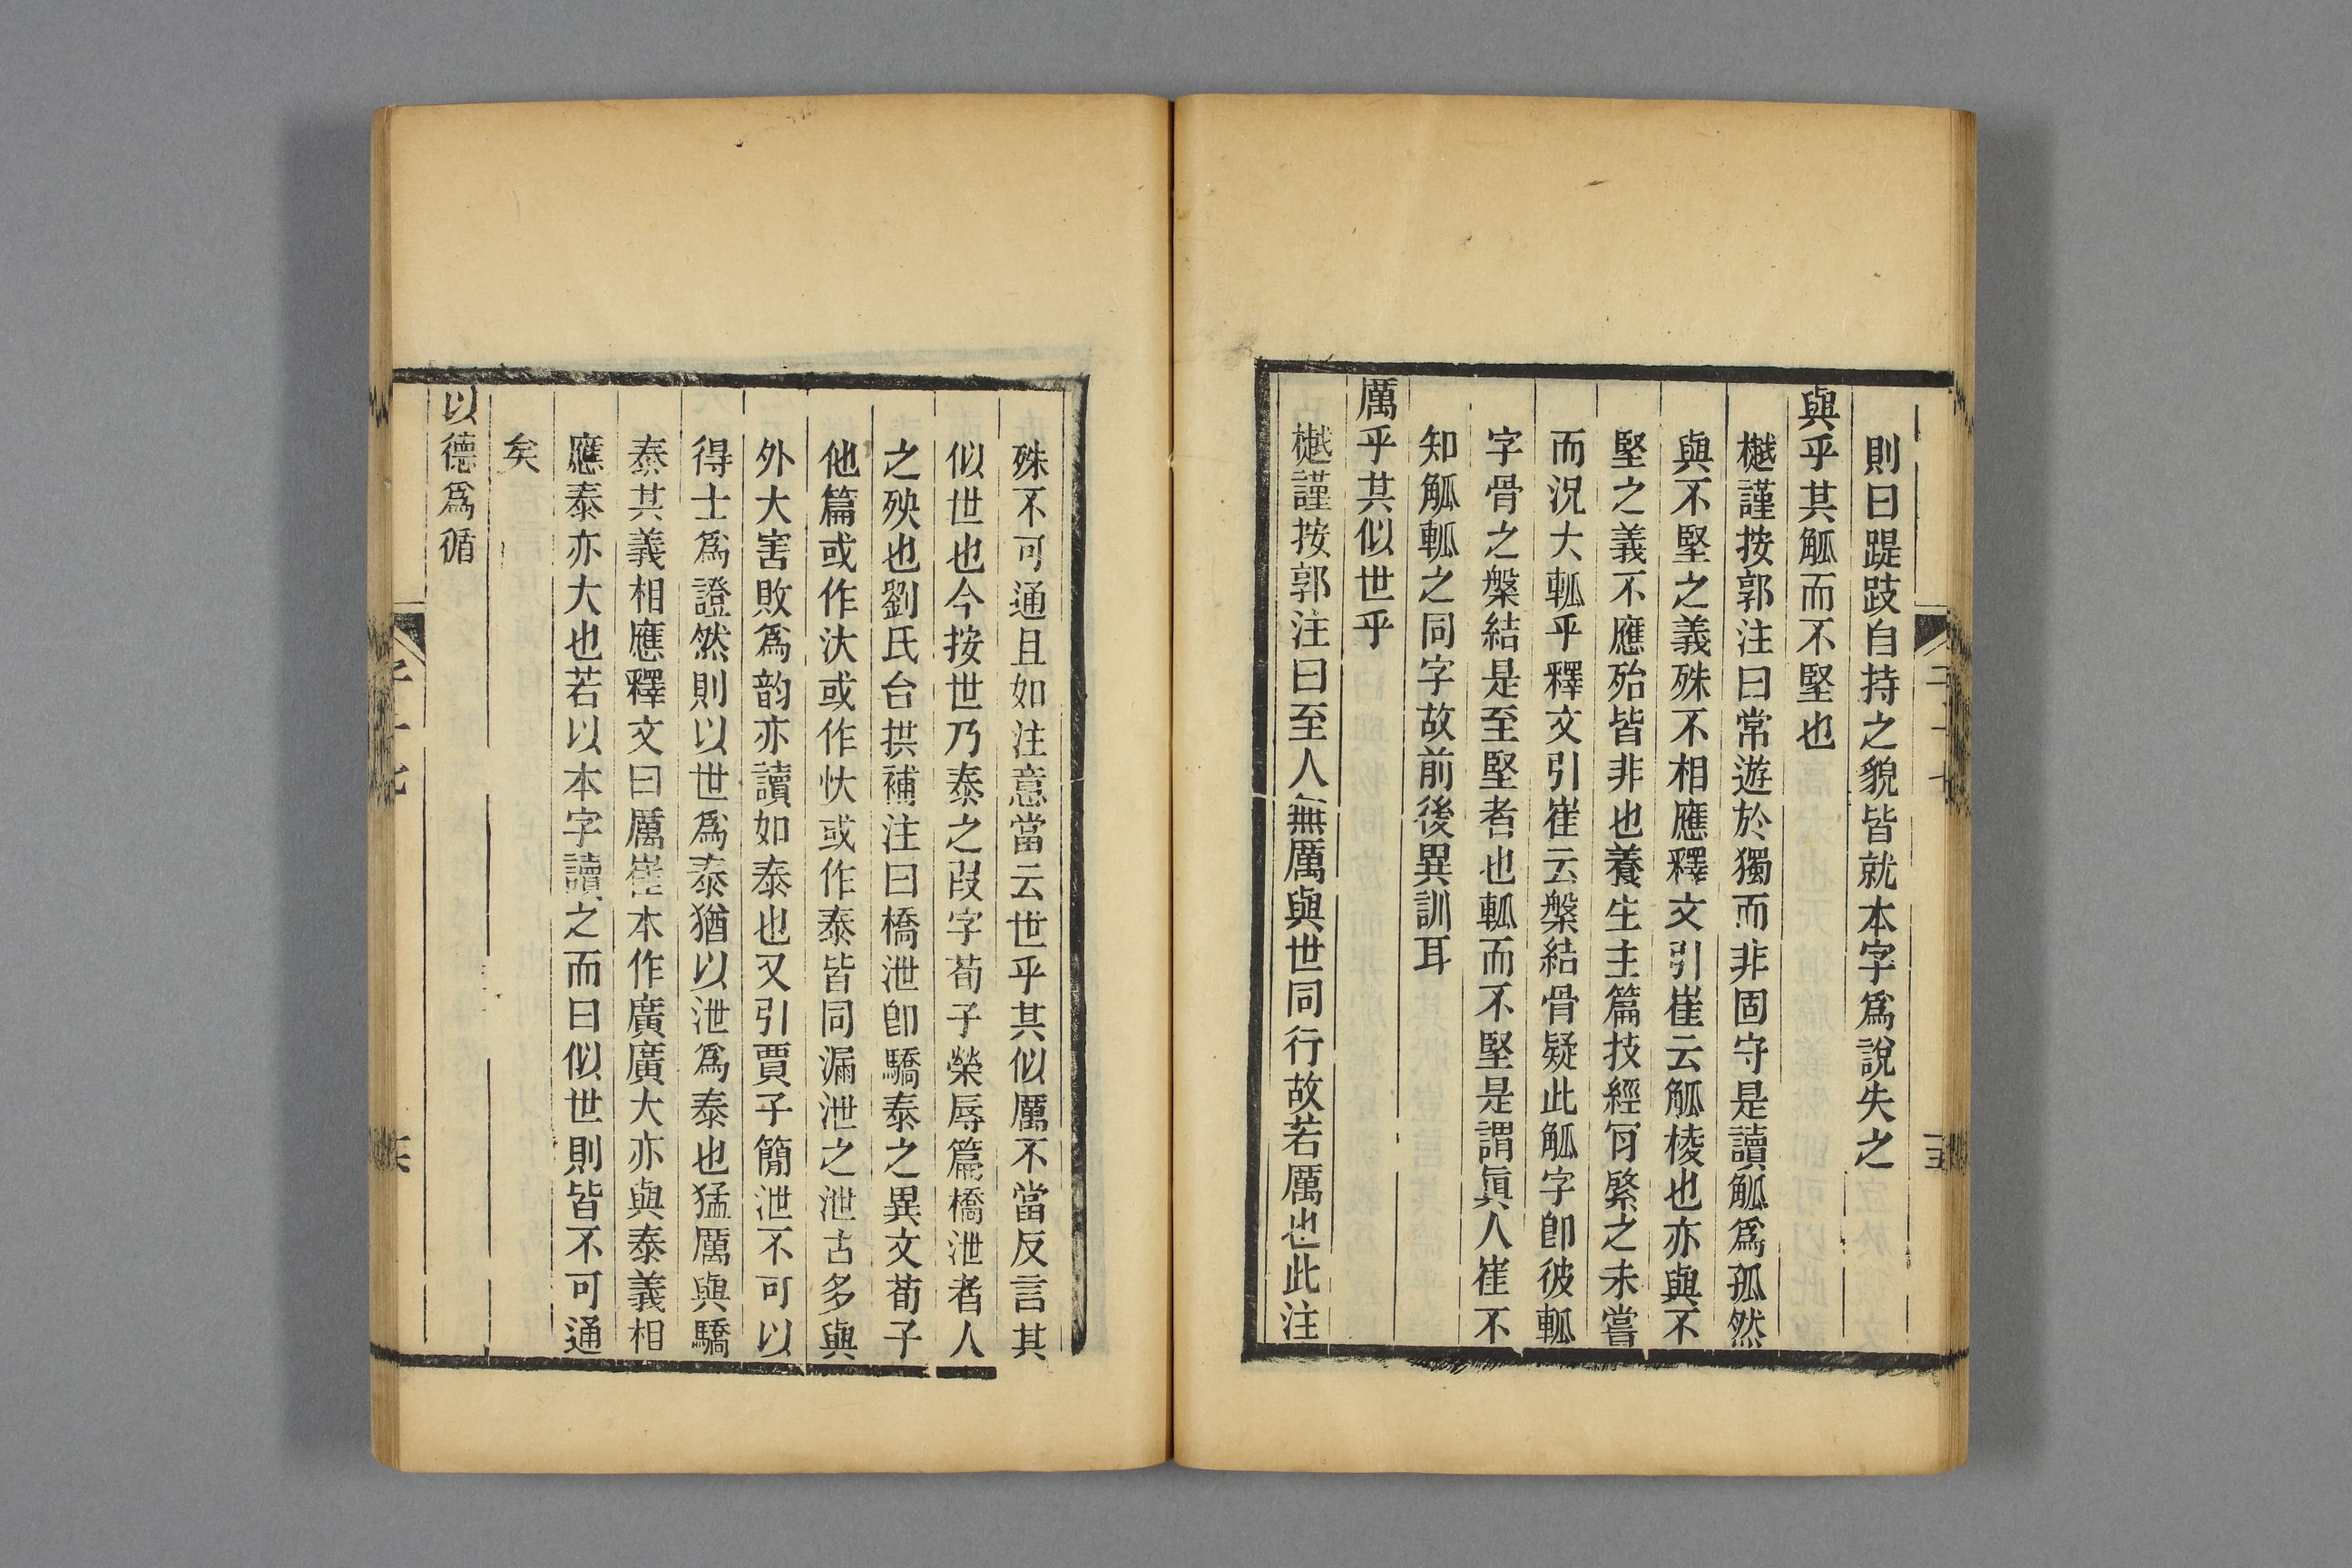 則曰踶跂自持之貌皆就本字爲說失之
與乎其觚而不堅也
樾謹按郭注曰常遊於獨而非固守是讀觚爲孤然
與不堅之義殊不相應釋文引崔云觚棱也亦與不
堅之義不應殆皆非也養生主篇技經肯綮之未嘗
而況大軱乎釋文引崔云槃結骨疑此觚字卽彼軱
字骨之槃結是至堅者也軱而不堅是謂眞人崔不
知觚軱之同字故前後異訓耳
厲乎其似世乎
樾謹按郭注曰至人無厲與世同行故若厲也此注
殊不可通且如注意當云世乎其似厲不當反言其
似世也今按世乃泰之叚字荀子榮辱篇橋泄者人
之殃也劉氏台拱補注曰橋泄卽驕泰之異文荀子
他篇或作汏或作忕或作泰皆同漏泄之泄古多與
外大害敗爲韵亦讀如泰也又引賈子簡泄不可以
得士爲證然則以世爲泰猶以泄爲泰也猛厲與驕
泰其義相應釋文曰厲崔本作廣廣大亦與泰義相
應泰亦大也若以本字讀之而曰似世則皆不可通
矣
以德爲循